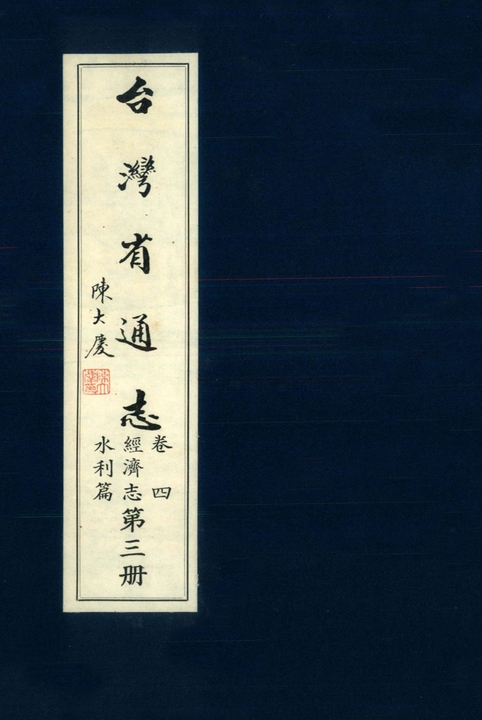 台灣省通志
卷四
經濟志第三册
水利篇
陳大慶